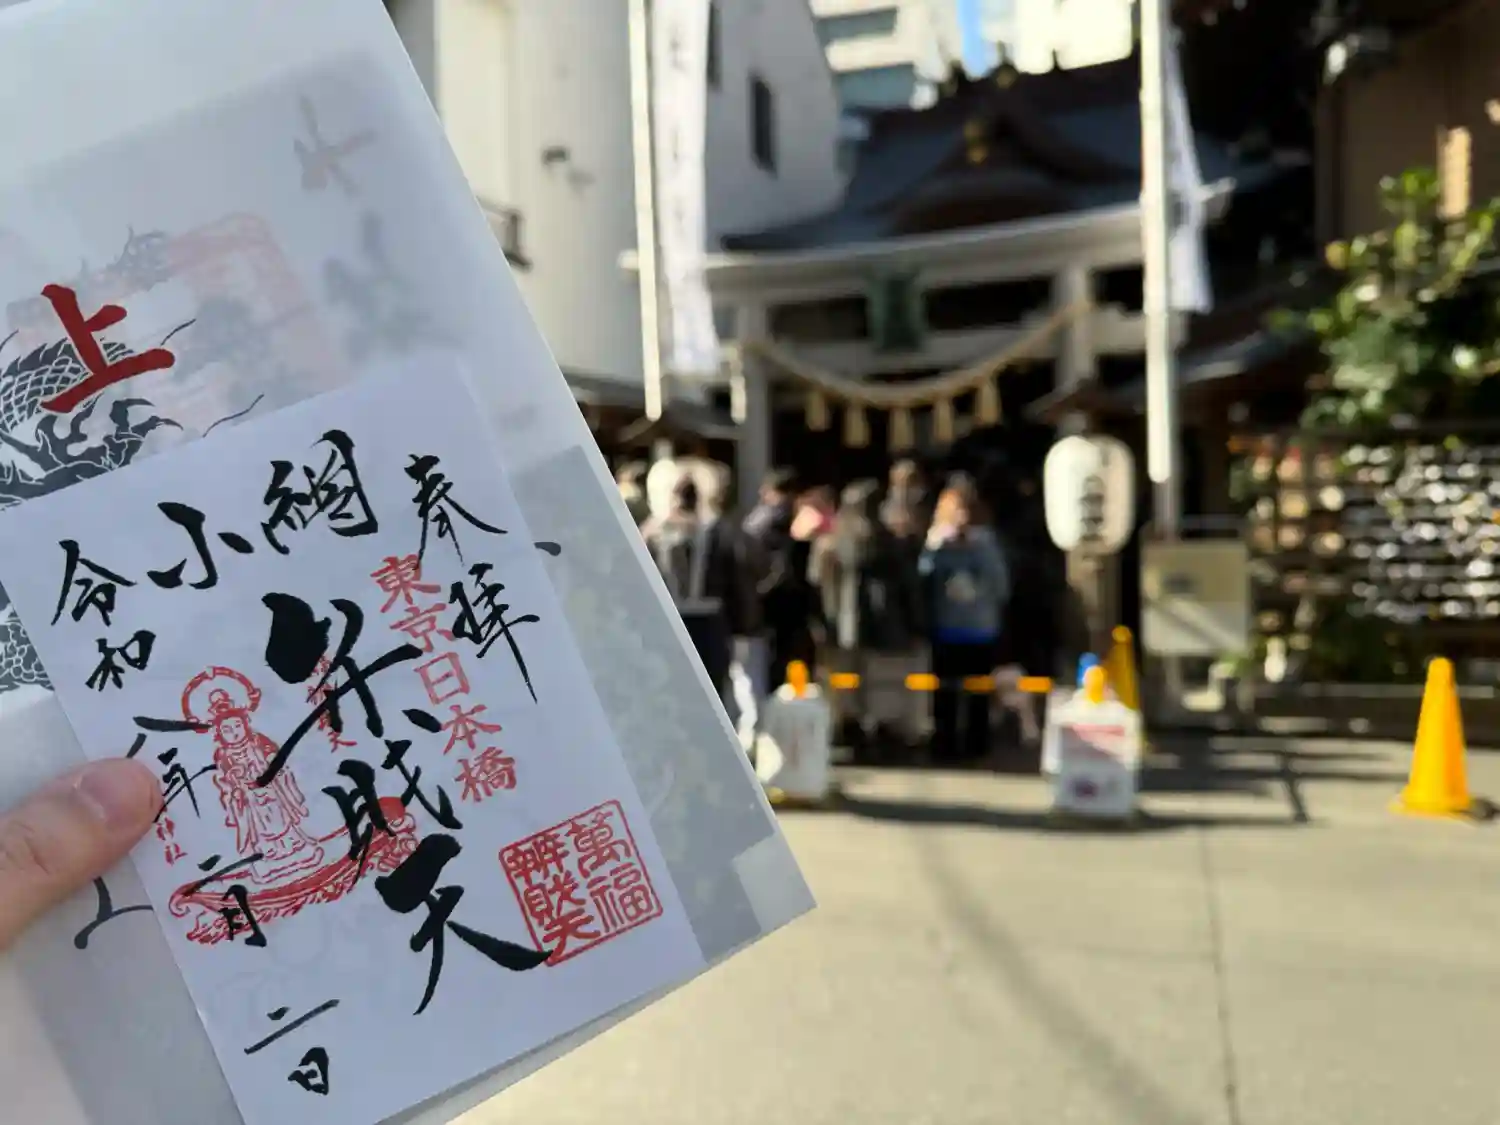 奉拝
東京日本橋
小網
弁財天
萬福
辨財天
令和八年二月二日
神社
上